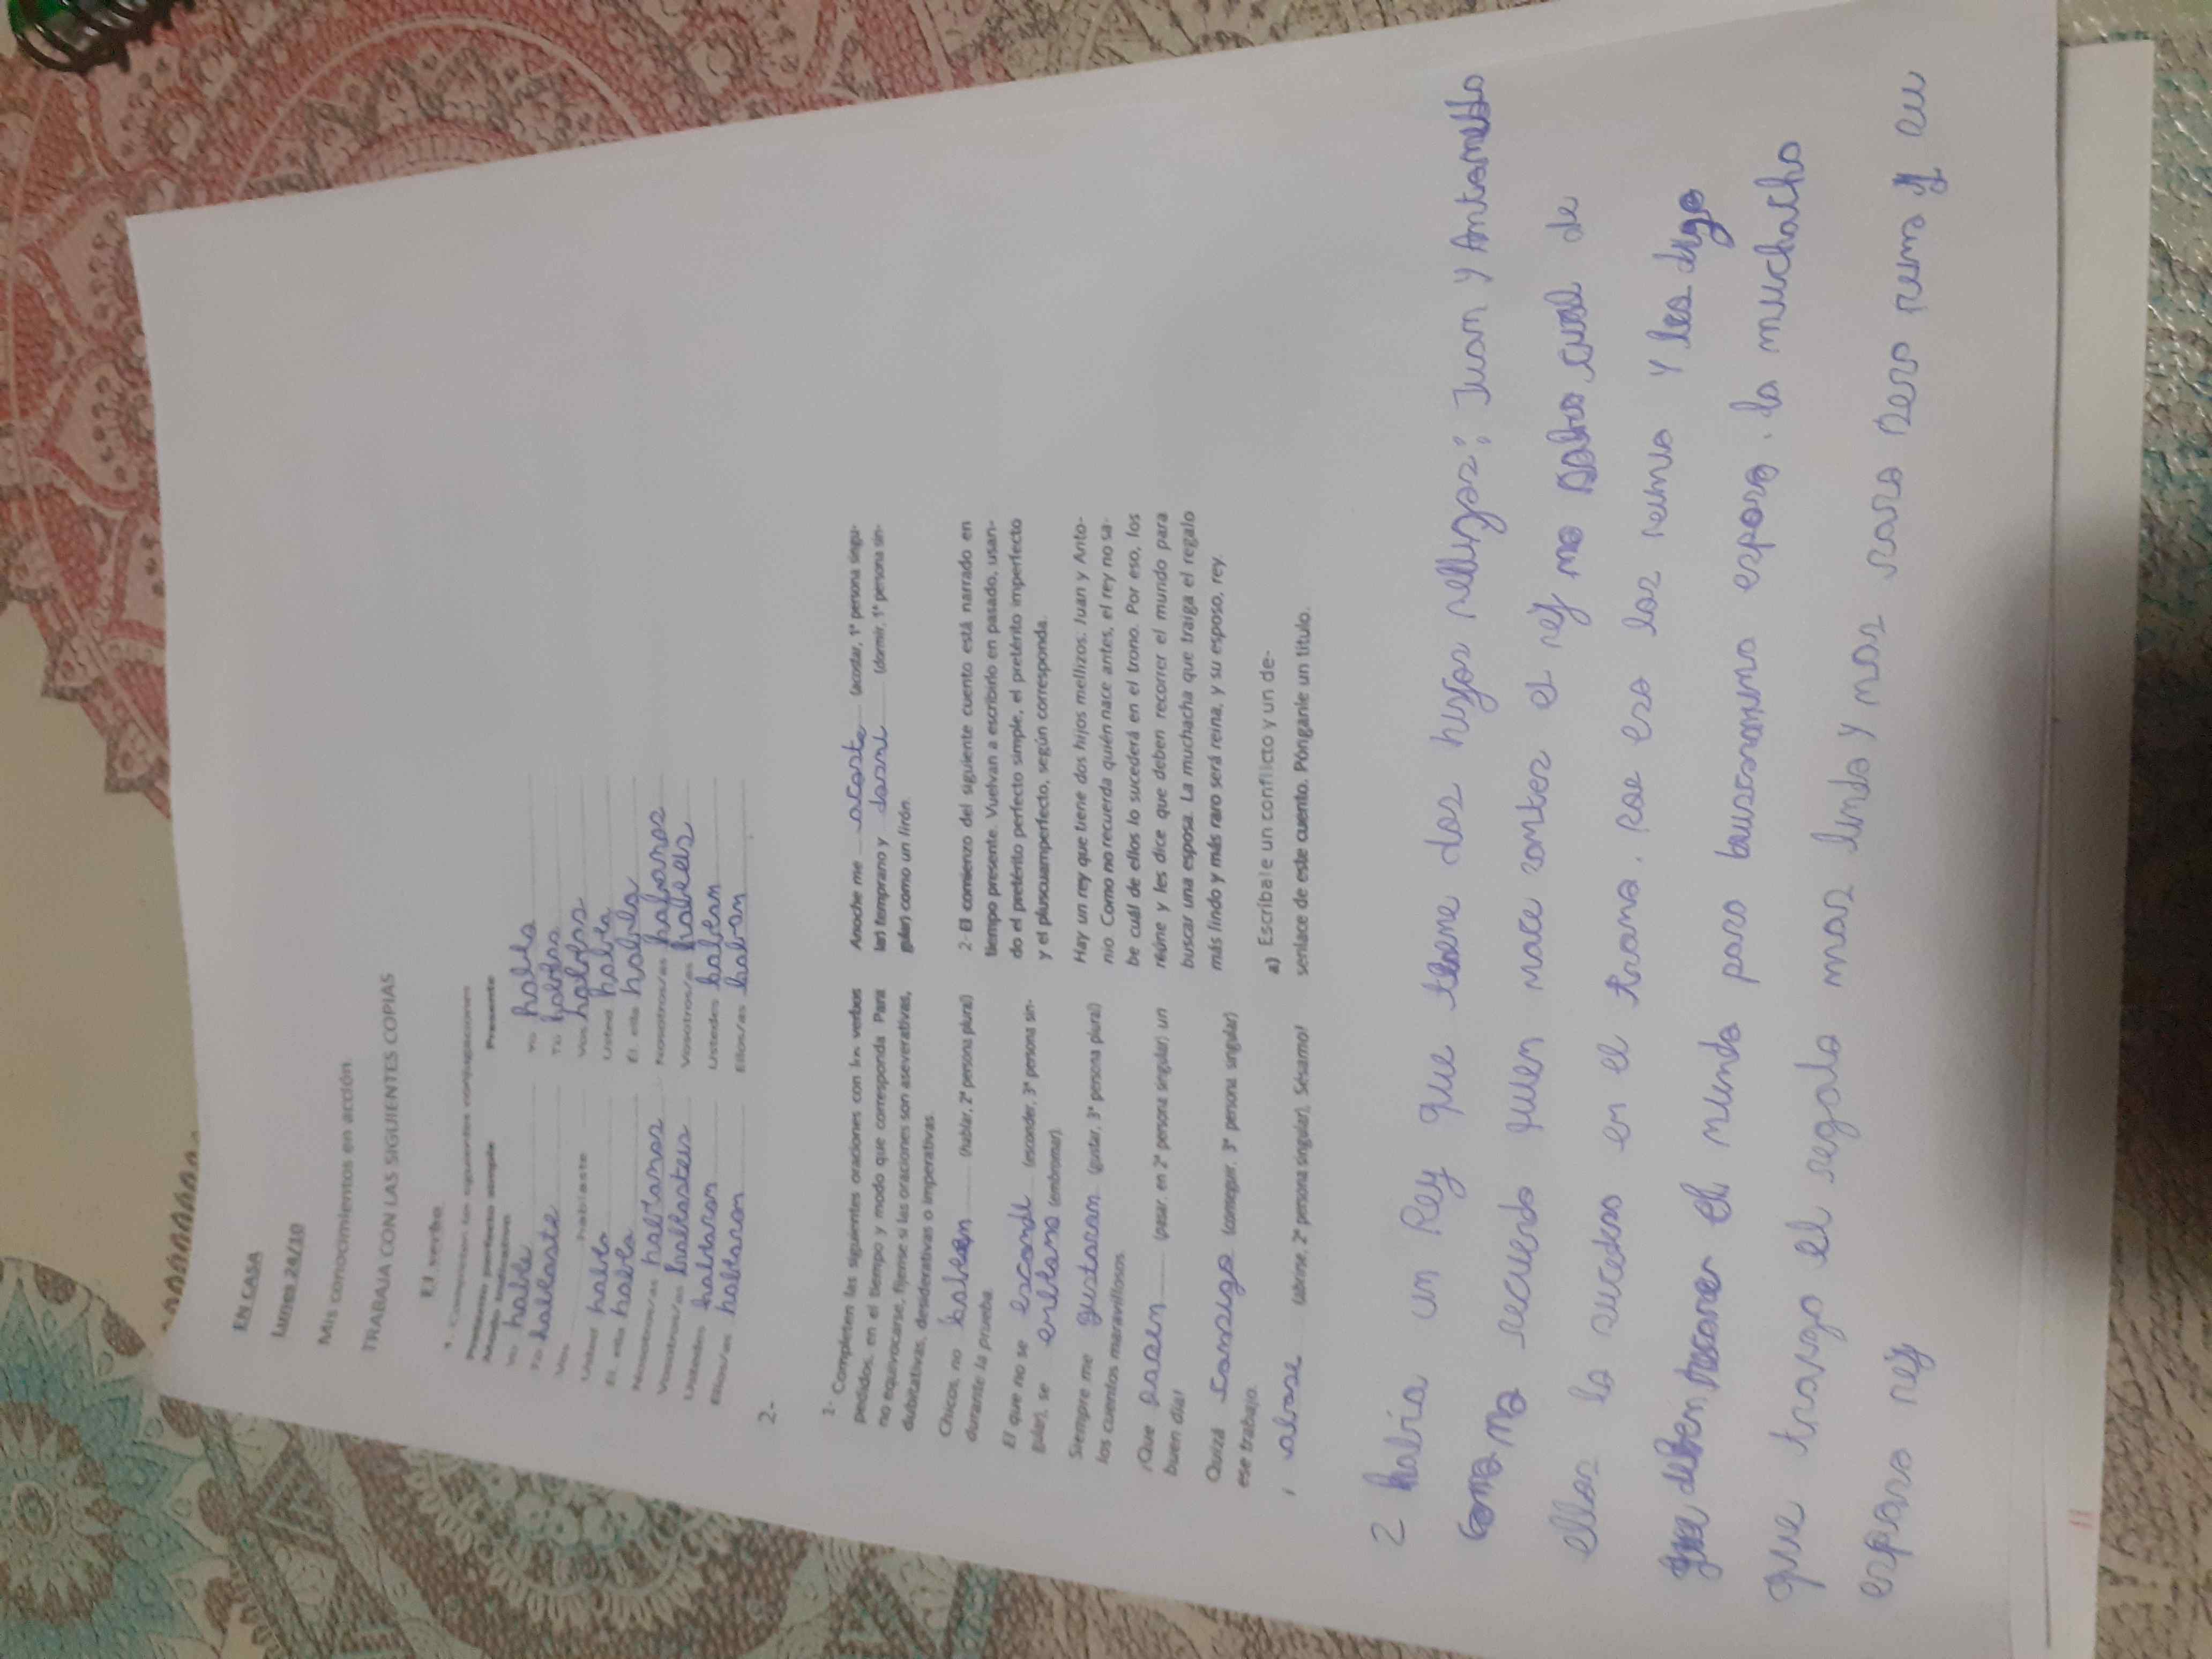 EN CASA
Lunes 24/10
Mis conocimientos en acción
TRABAJA CON LAS SIGUIENTES COPIAS
El verbo
1. Completen las siguientes conjugaciones
Pretérito perfecto simple
Modo indicativo
Yo hable
Tú hablaste
Vos hablaste
Usted habla
El, ella habla
Nosotros/as
Vosotros/as hablasteis
Ustedes hablaron
Ellos/as hablaron
Presente
Yo habla
Tú hablas
Vos hablas
Usted habla
El, ella habla
Nosotros/as
Vosotros/as
Ustedes hablan
Ellos/as hablan
2-
1- Completen las siguientes oraciones con los verbos
pedidos, en el tiempo y modo que corresponda. Para
no equivocarse, fíjense si las oraciones son aseverativas,
dubitativas, desiderativas o imperativas.
Chicos, no hablen (hablar, 2ª persona plural)
durante la prueba.
El que no se esconde (esconder, 3ª persona sin-
gular), se (embromar).
Siempre me gustaron (gustar, 3ª persona plural)
los cuentos maravillosos.
¡Que pasen (pasar, en 2ª persona singular) un
buen día!
Quizá consiga (conseguir, 3ª persona singular)
ese trabajo.
¡ abrase (abrirse, 2ª persona singular), Sésamo!
Anoche me acosté (acostar, 1ª persona singu-
lar) temprano y dormi (dormir, 1ª persona sin-
gular) como un lirón.
2- El comienzo del siguiente cuento está narrado en
tiempo presente. Vuelvan a escribirlo en pasado, usan-
do el pretérito perfecto simple, el pretérito imperfecto
y el pluscuamperfecto, según corresponda.
Hay un rey que tiene dos hijos mellizos: Juan y Anto-
nio. Como no recuerda quién nace antes, el rey no sa-
be cuál de ellos lo sucederá en el trono. Por eso, los
reúne y les dice que deben recorrer el mundo para
buscar una esposa. La muchacha que traiga el regalo
más lindo y más raro será reina, y su esposo, rey.
a) Escríbale un conflicto y un de-
senlace de este cuento. Pónganle un título.
2 había un Rey que tiene dos hijos mellizos; Juan y
Como no recuerda quien nace antes el rey no cual de
ellos lo sucedera en el trono. Por eso los y les dijo
que deben el mundo para esposa. la muchacha
que trayga el regalo mas lindo y mas raro sera y su
esposo rey